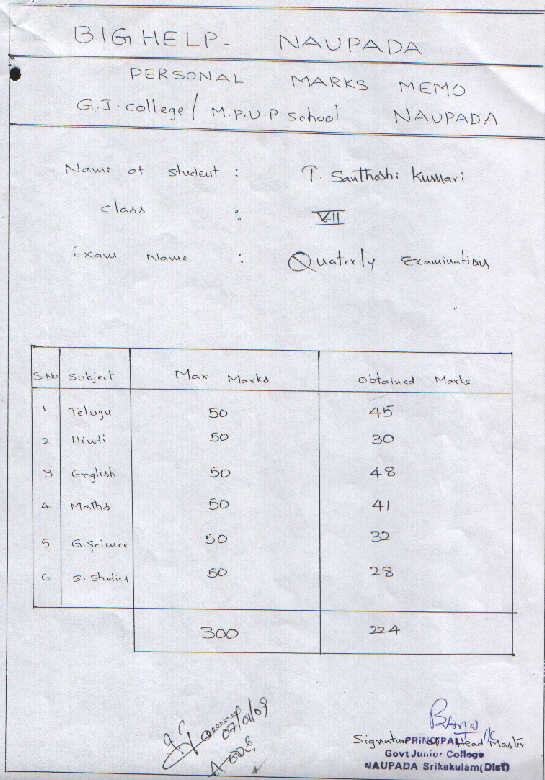 BIGHELP- NAUPADA
PERSONAL MARKS MEMO
G.J. college / M.P.U.P School NAUPADA
Name of student : T. Santhoshi Kumari
class : VII
Exam Name : Quaterly Examinations
S.No Subject Max Marks Obtained Marks
1 Telugu 50 45
2 Hindi 50 30
3 English 50 48
4 Maths 50 41
5 G. Science 50 32
6 S. Studies 50 28
300 224
Signature of Head Master
PRINCIPAL
Govt Junior College
NAUPADA Srikakulam (Dist)